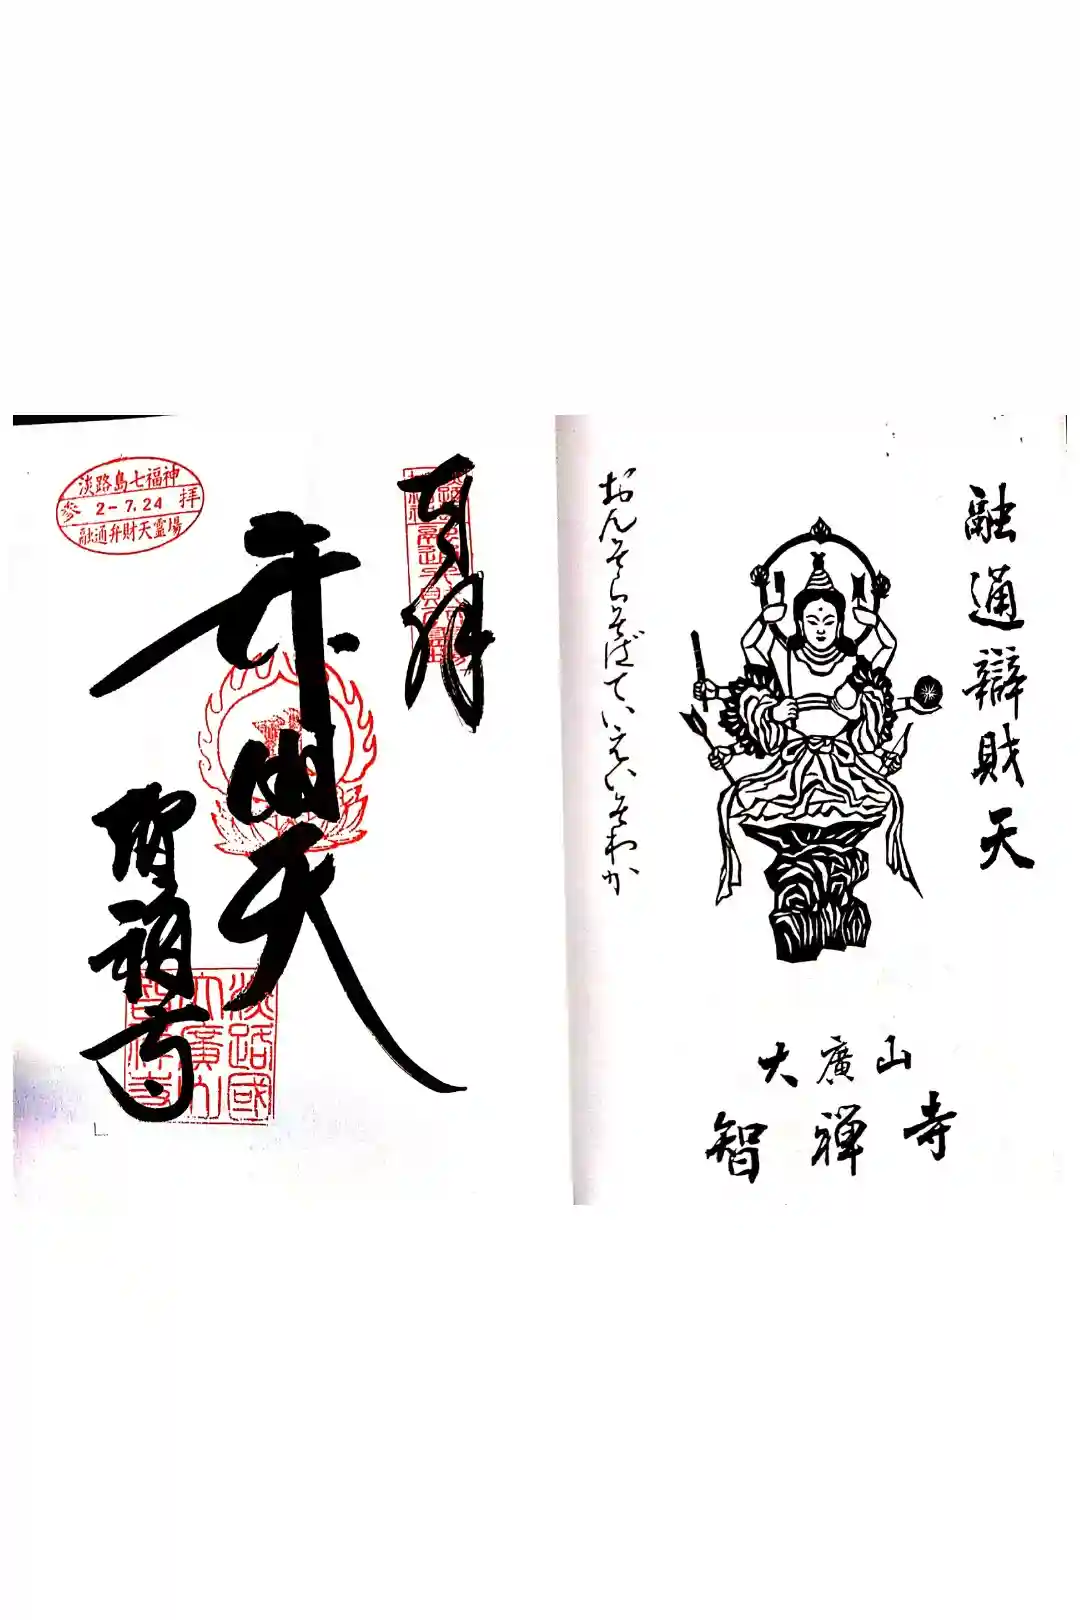 融通辯財天
おんそらそばていえいそわか
大廣山
智禅寺
奉拝
弁財天
智禅寺
淡路島七福神
参 2-7.24 拝
融通弁財天霊場
淡路國
大廣山
智禅寺